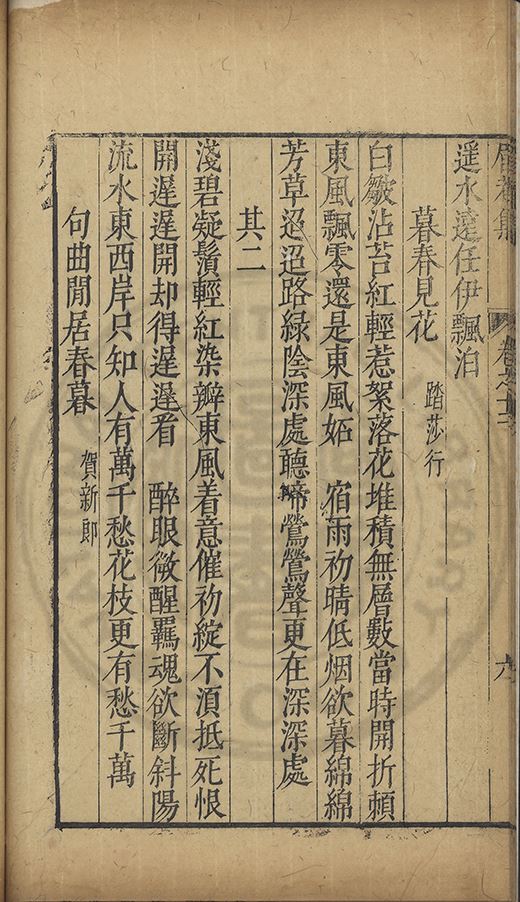 遥水遠任伊飄泊
暮春見花 踏莎行
白皴沾苔紅輕惹絮落花堆積無層數當時開折賴
東風飄零還是東風妬 宿雨初晴低烟欲暮綿綿
芳草迢迢路綠陰深處聽啼鶯鶯聲更在深深處
其二
淺碧凝鬚輕紅染瓣東風着意催初綻不湏抵死恨
開遲遲開却得遲遲看 醉眼微醒羈魂欲斷斜陽
流水東西岸只知人有萬千愁花枝更有愁千萬
句曲閒居春暮 賀新郎
卷之十三
六